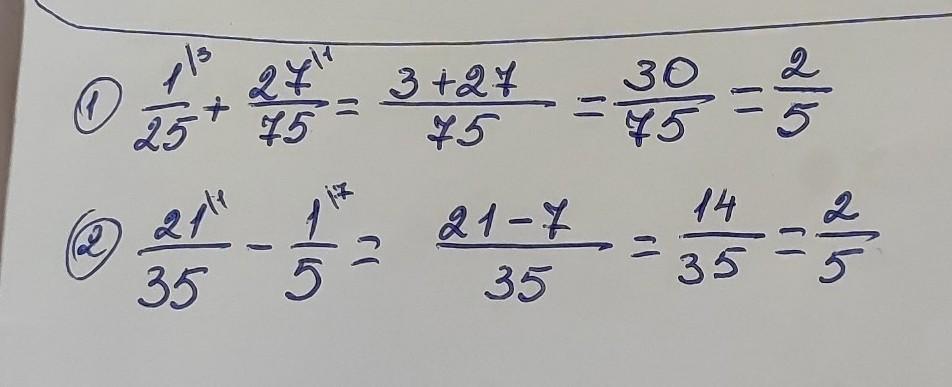 ① 1\3/25 + 27\1/75 = 3+27/75 = 30/75 = 2/5
② 21\1/35 - 1\7/5 = 21-7/35 = 14/35 = 2/5